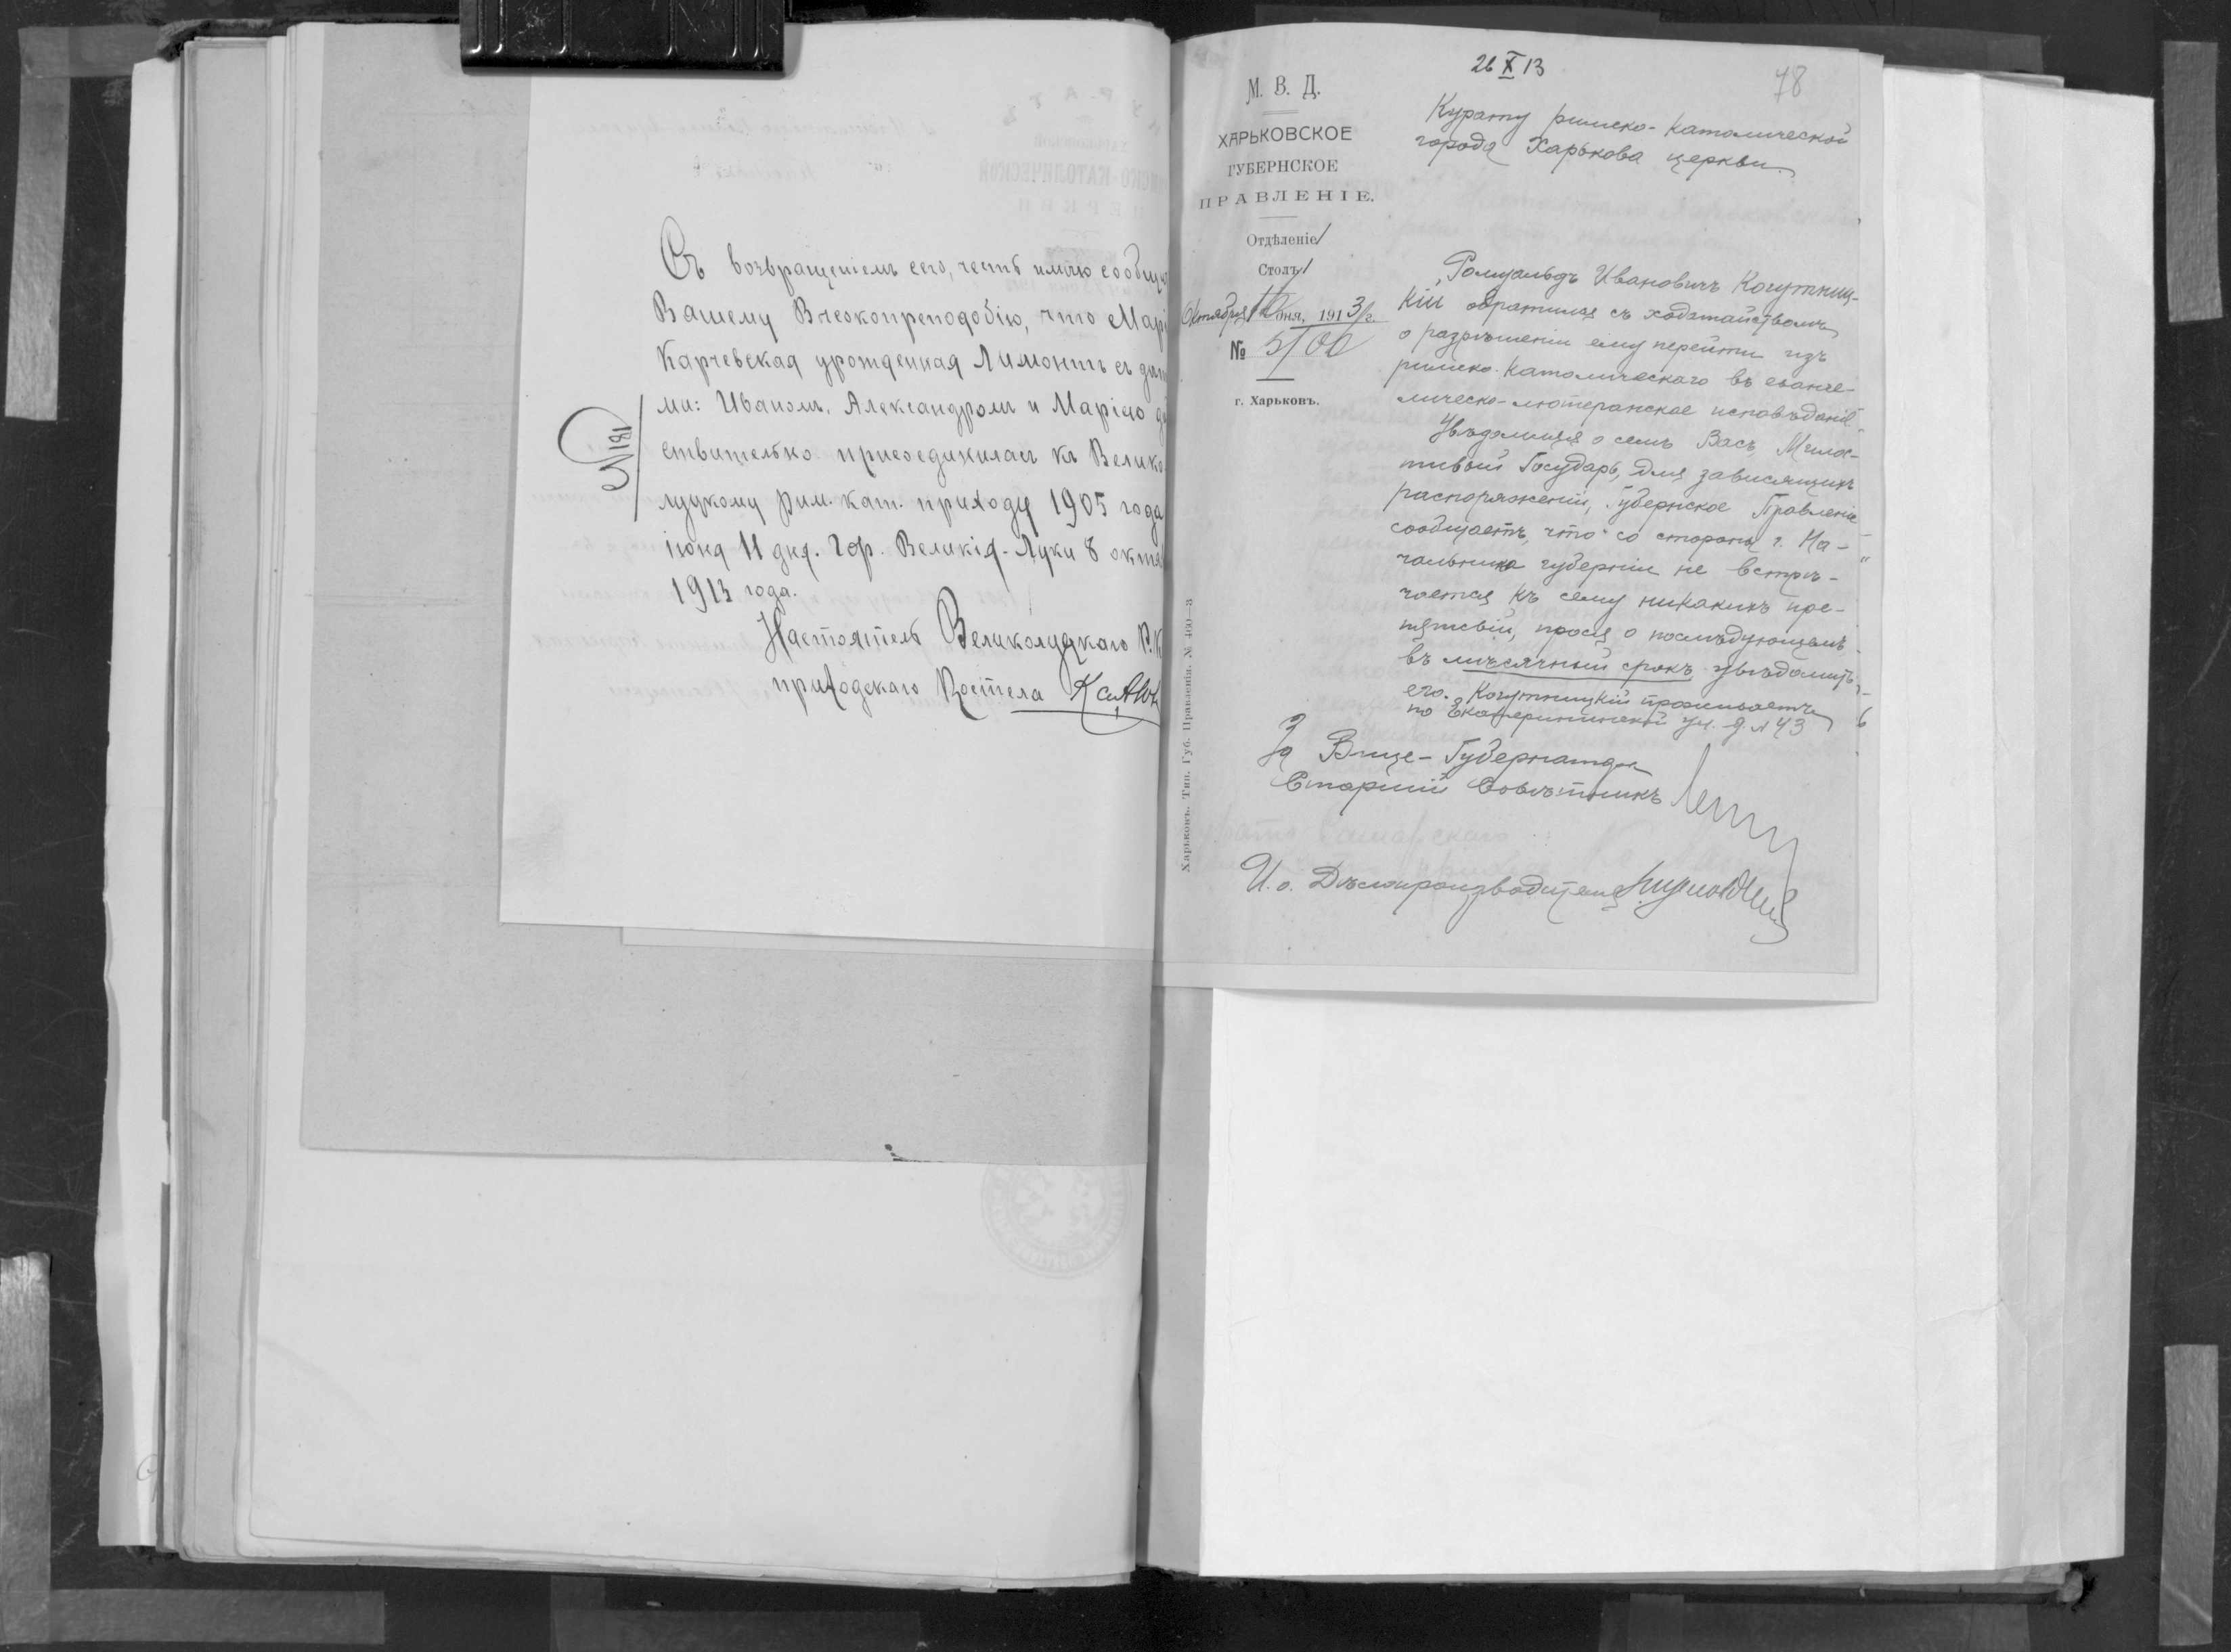 Съ возвращеніемъ сего, честь имѣю сообщи
Вашему Высокопреподобію, что Марі
Карчевская урожденная Лимонтъ съ дѣт
ми: Иваномъ, Александромъ и Маріею дѣ
ствительно присоединилась къ Велико
луцкому рим. кат. приходу 1905 года
іюня 11 дня. Гор. Великія-Луки 8 октя
1913 года.
Настоятель Великолуцкаго Р. К
приходскаго Костела
№ 181
26 X 13
78
М. В. Д.
ХАРЬКОВСКОЕ
ГУБЕРНСКОЕ
ПРАВЛЕНІЕ.
Отдѣленіе 1
Столъ 1
Октября дня, 1913 г.
№ 5100
г. Харьковъ.
Харьковъ. Тип. Губ. Правленія. № 460—3
Курату римско-католической
города Харькова церкви
Ромуальдъ Ивановичъ Когутниц-
кій обратился съ ходатайствомъ
о разрѣшеніи ему перейти изъ
римско-католическаго въ еванге-
лическо-лютеранское исповѣданіе
Увѣдомляя о семъ Васъ, Милос-
тивый Государь, для зависящихъ
распоряженій, Губернское Правленіе
сообщаетъ, что со стороны г. На-
чальника губерніи не встрѣ-
чается къ сему никакихъ пре-
пятствій, прося о послѣдующемъ
въ мѣсячный срокъ увѣдомить
его. Когутницкій проживаетъ
по Екатерининской ул. д. № 43
За Вице-Губернатора
Старшій Совѣтникъ
И. о. Дѣлопроизводителя